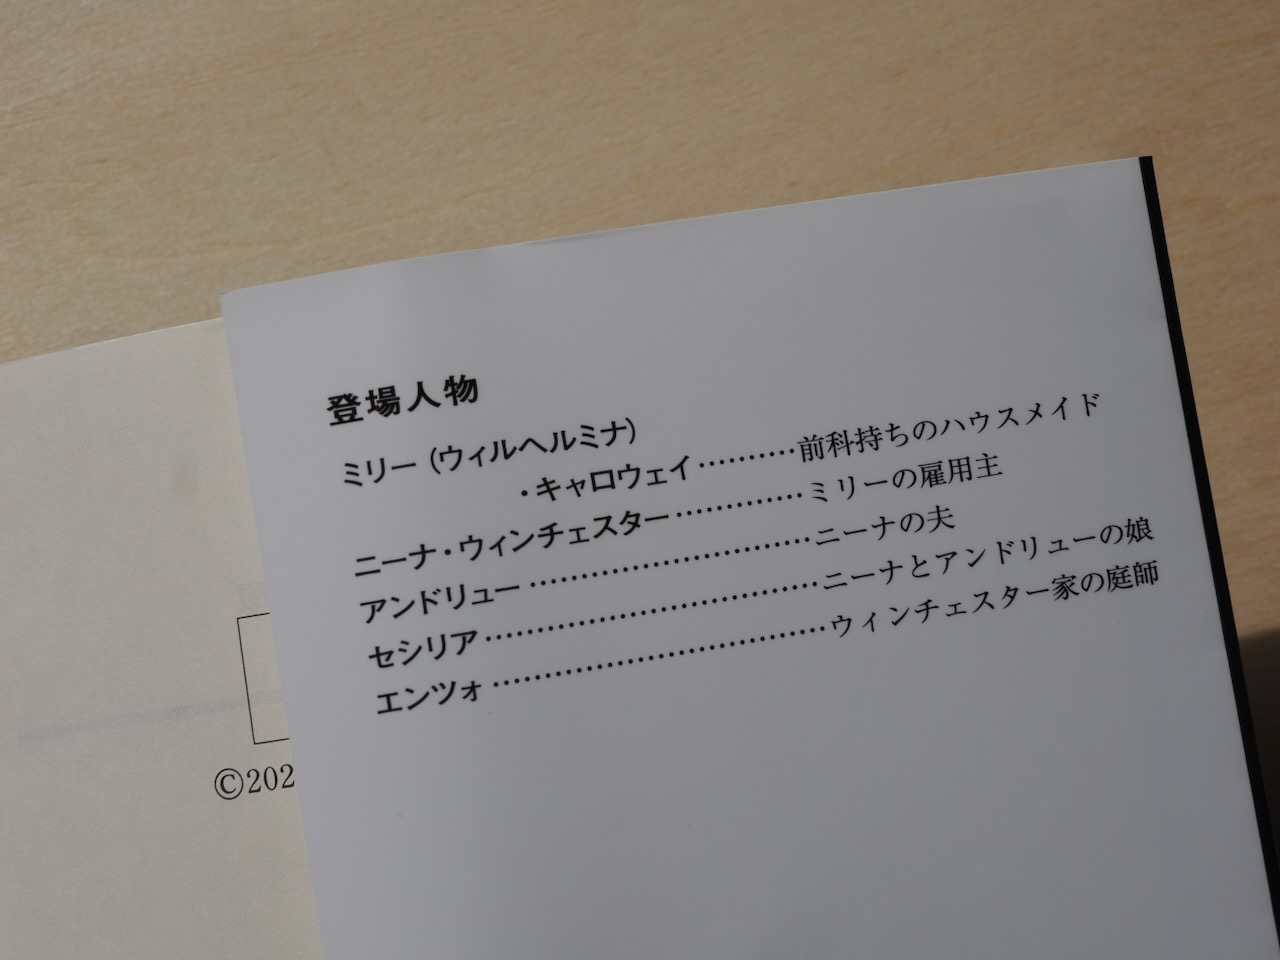 登場人物
ミリー(ウィルヘルミナ)
・キャロウェイ‥‥‥‥‥前科持ちのハウスメイド
ニーナ・ウィンチェスター‥‥‥‥‥‥ミリーの雇用主
アンドリュー‥‥‥‥‥‥‥‥‥‥‥‥ニーナの夫
セシリア‥‥‥‥‥‥‥‥‥‥‥‥‥‥ニーナとアンドリューの娘
エンツォ‥‥‥‥‥‥‥‥‥‥‥‥‥‥ウィンチェスター家の庭師
©202